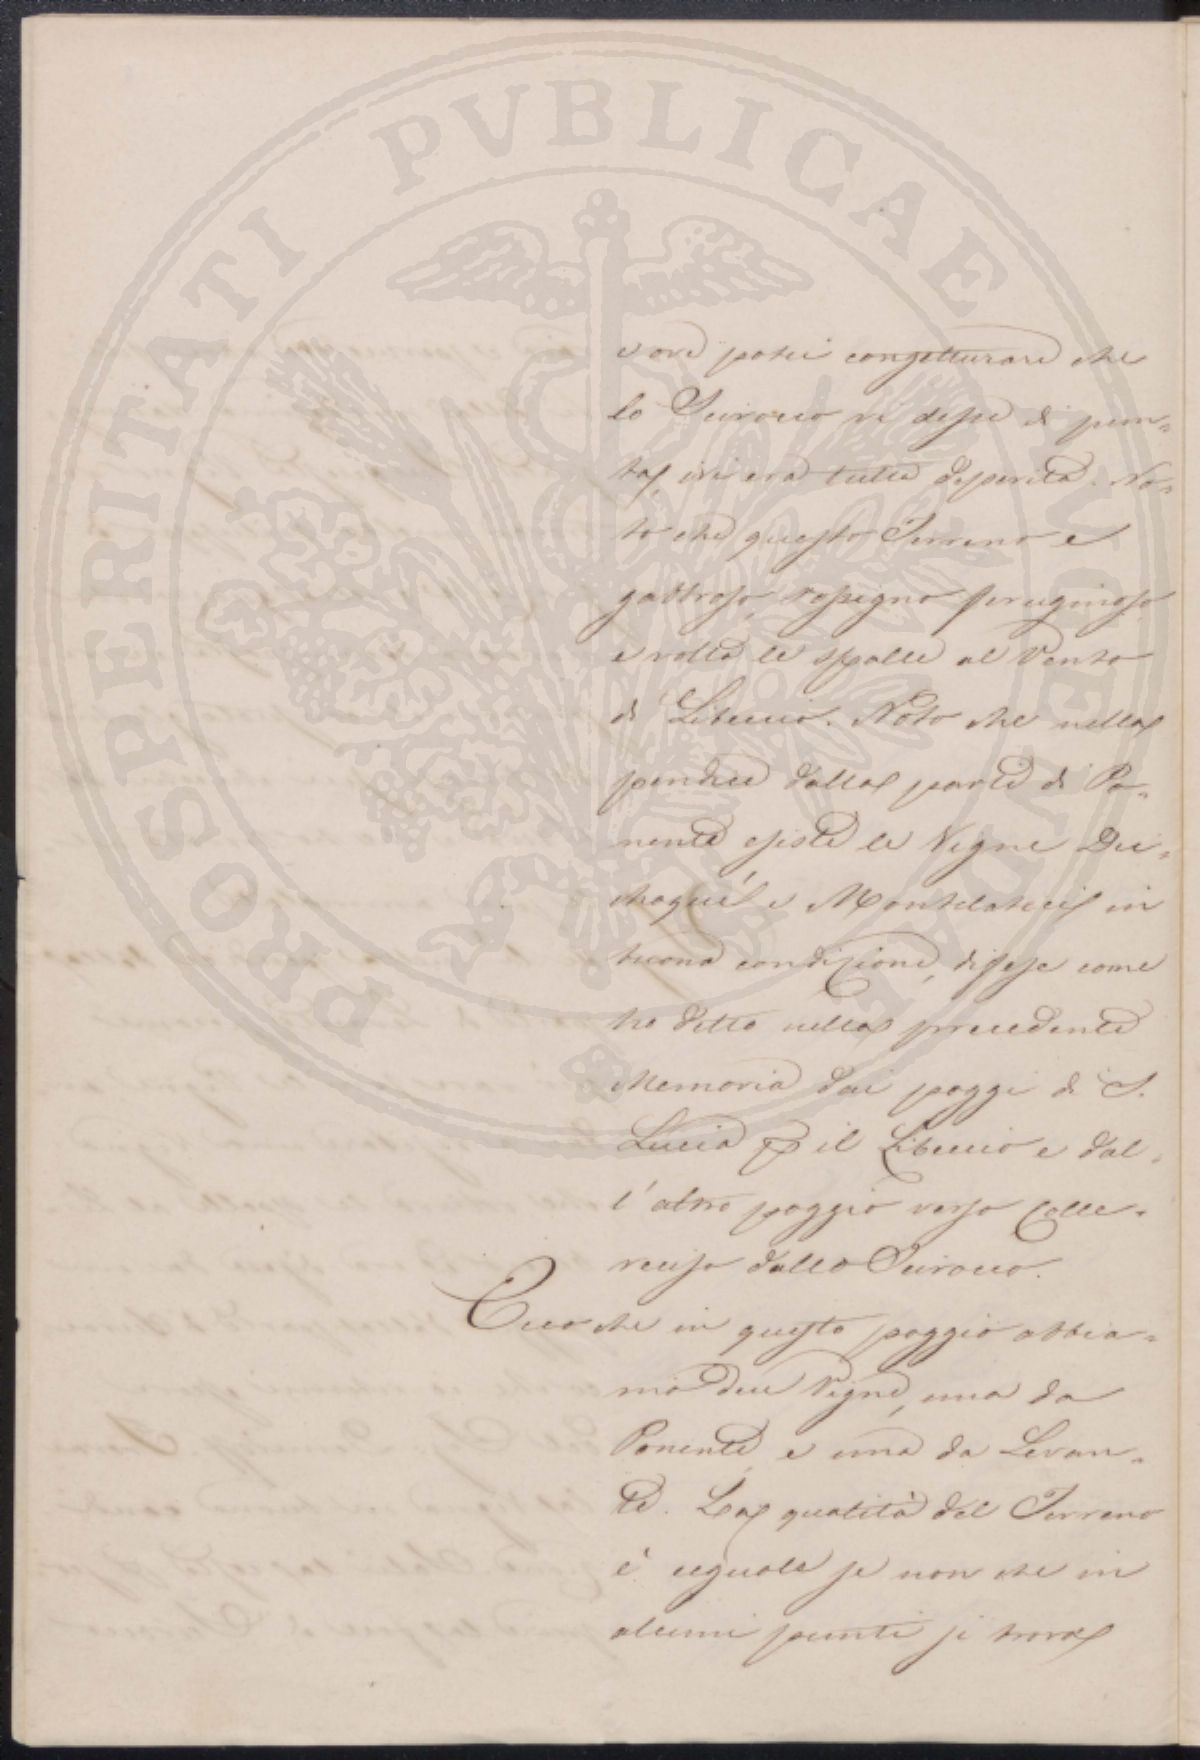 PROSPERITATI PVBLICAE AVGENDAE
e ove potei congetturare che
lo Scirocco vi desse di pun-
ta, ivi era tutta deperita. No-
to che questo Terreno e
gabbroso, rossigno ferruginoso
e volta le spalle al Vento
di Libeccio. Noto che nella
pendice dalla parte di Po-
nente esiste le Vigne Du-
choquè e Montelatici in
buona condizione, difese come
ho detto nella precedente
Memoria dai poggi di S.
Lucia p il Libeccio e dal-
l'altro poggio verso Colle-
reciso dallo Scirocco.
Ecco che in questo poggio abbia-
mo due Vigne, una da
Ponente e una da Levan-
te. La qualità del Terreno
è uguale se non che in
alcuni punti si trova